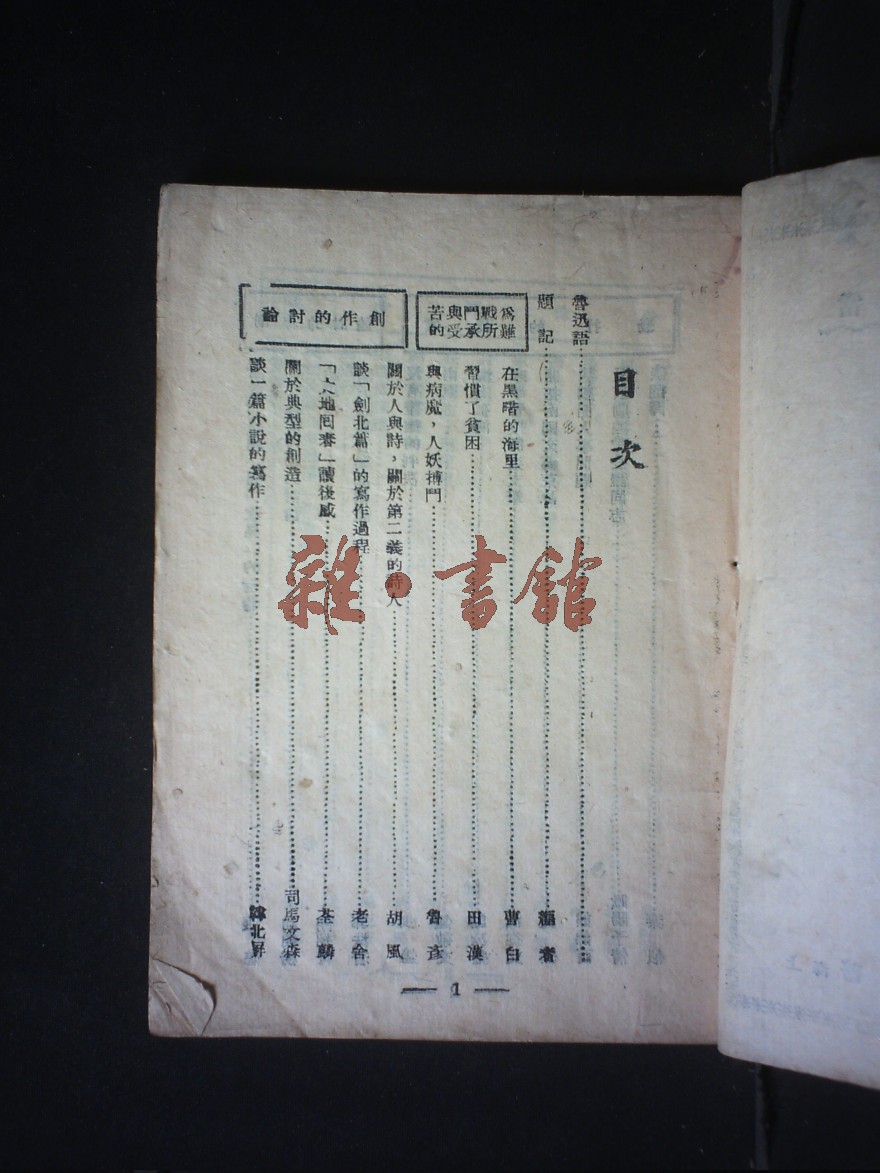 目次
魯迅語
題記 編者
為戰鬥與苦
難所承受的
在黑暗的海里 曹白
習慣了貧困 田漢
與病魔,人妖搏鬥 魯彥
創作的討論
關於人與詩,關於第二義的詩人 胡風
談「劍北篇」的寫作過程 老舍
「大地回春」讀後感 荃麟
關於典型的創造 司馬文森
談一篇小說的寫作 韓北屏
— 1 —
雜·書館